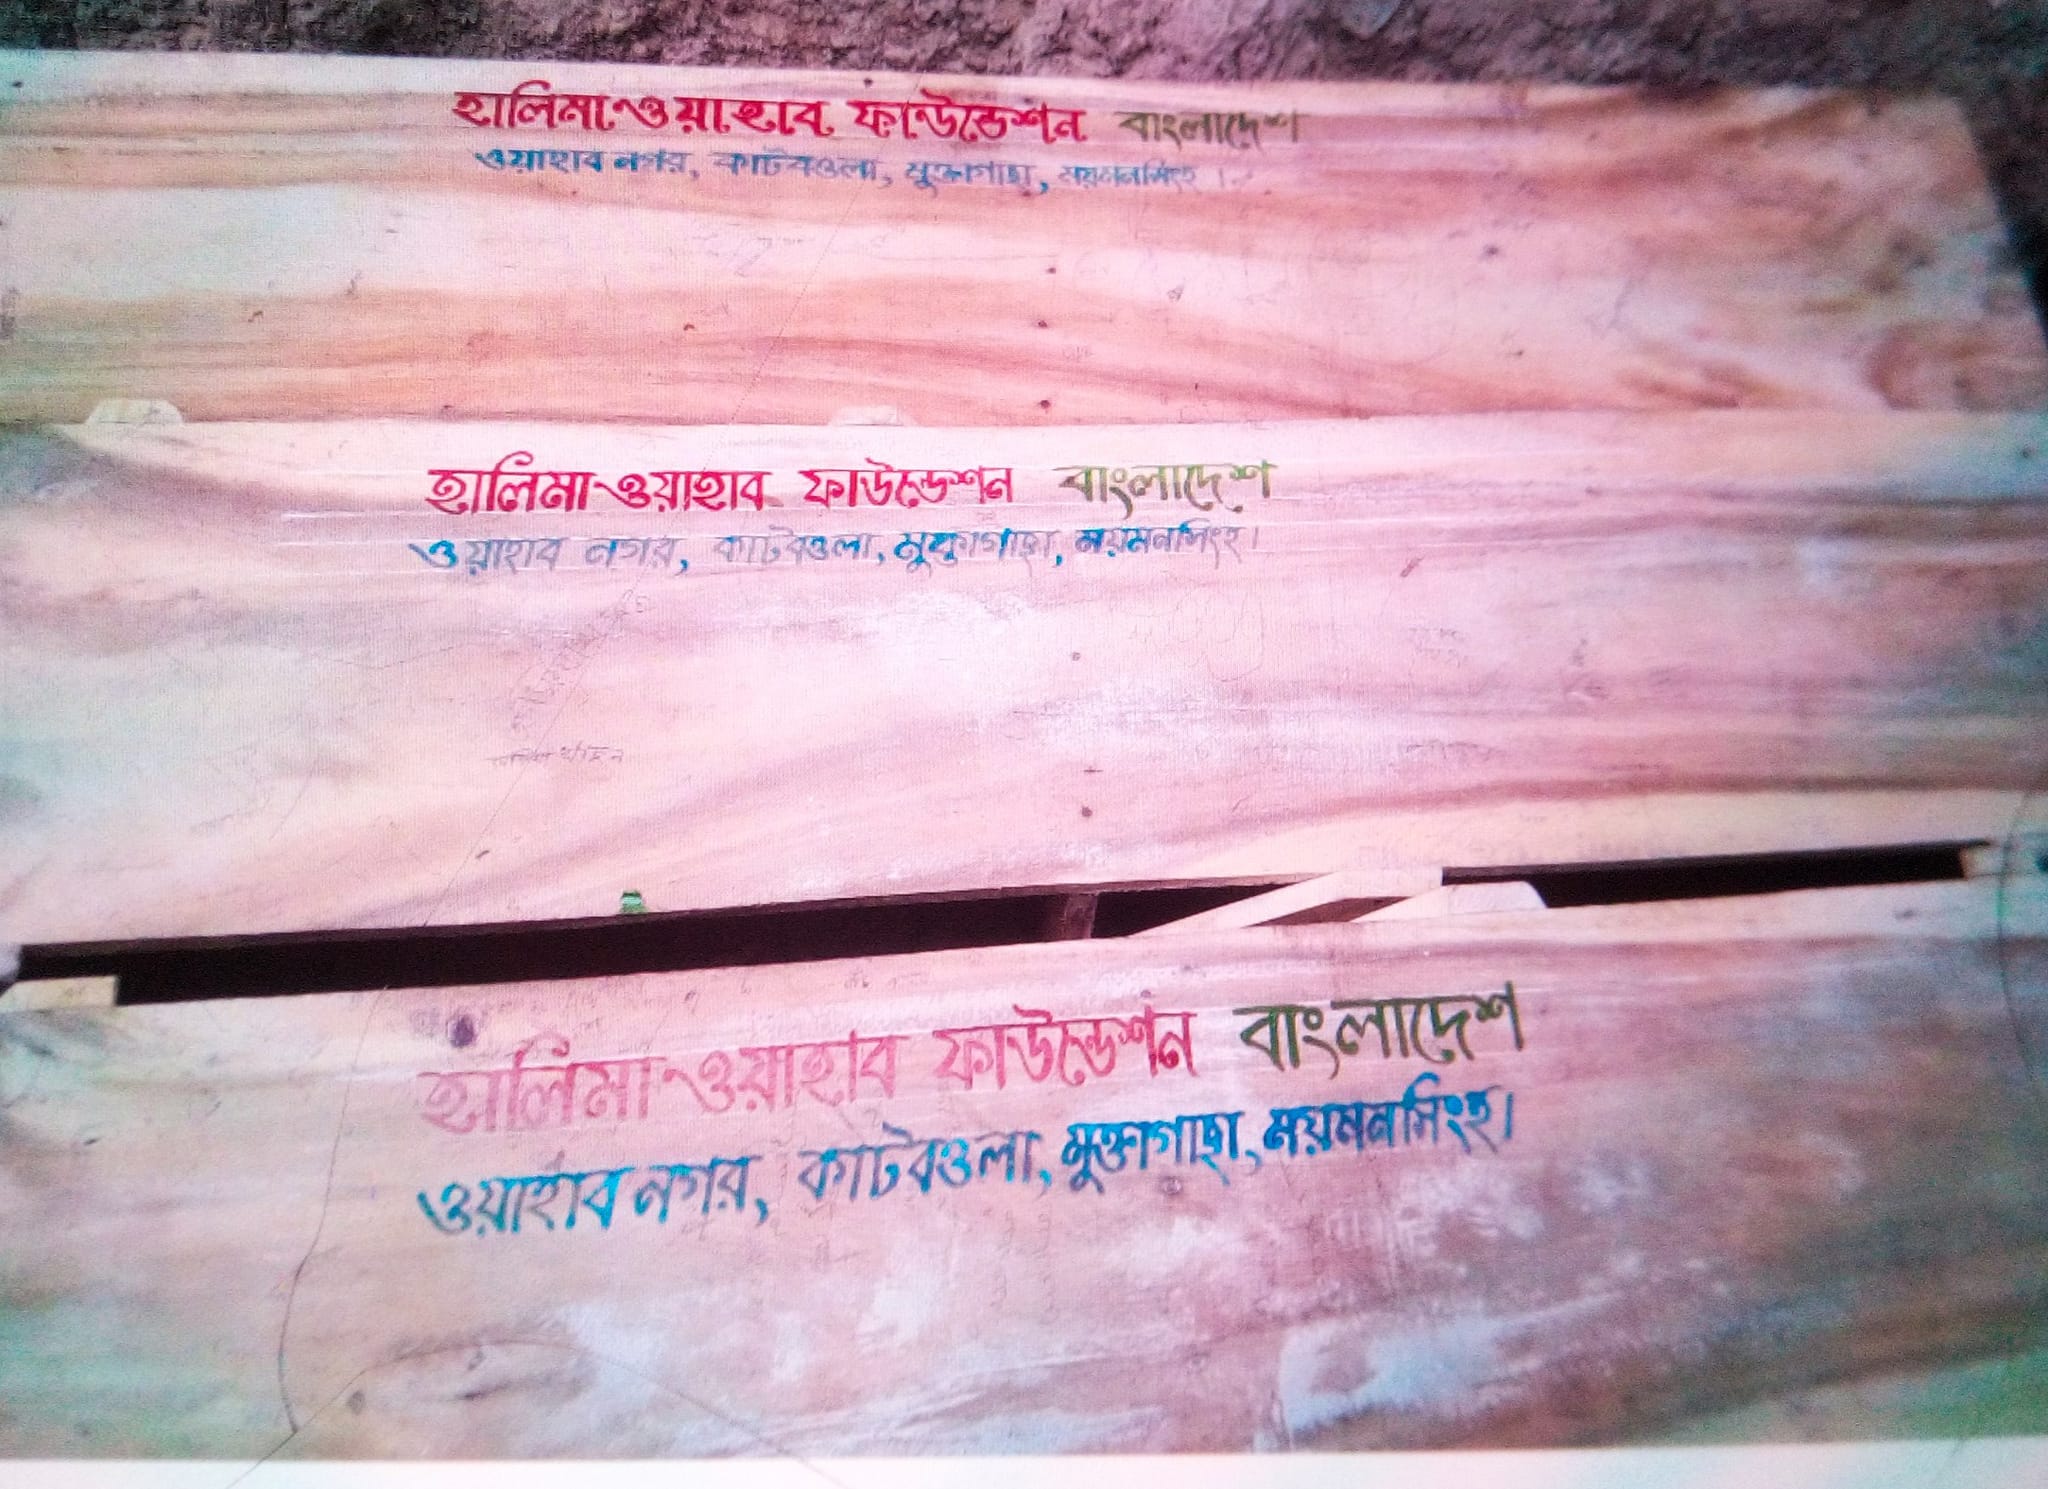 হালিমা-ওয়াহাব ফাউন্ডেশন বাংলাদেশ
ওয়াহাব নগর, কাটবওলা, মুক্তাগাছা, ময়মনসিংহ।
হালিমা-ওয়াহাব ফাউন্ডেশন বাংলাদেশ
ওয়াহাব নগর, কাটবওলা, মুক্তাগাছা, ময়মনসিংহ।
হালিমা-ওয়াহাব ফাউন্ডেশন বাংলাদেশ
ওয়াহাব নগর, কাটবওলা, মুক্তাগাছা, ময়মনসিংহ।